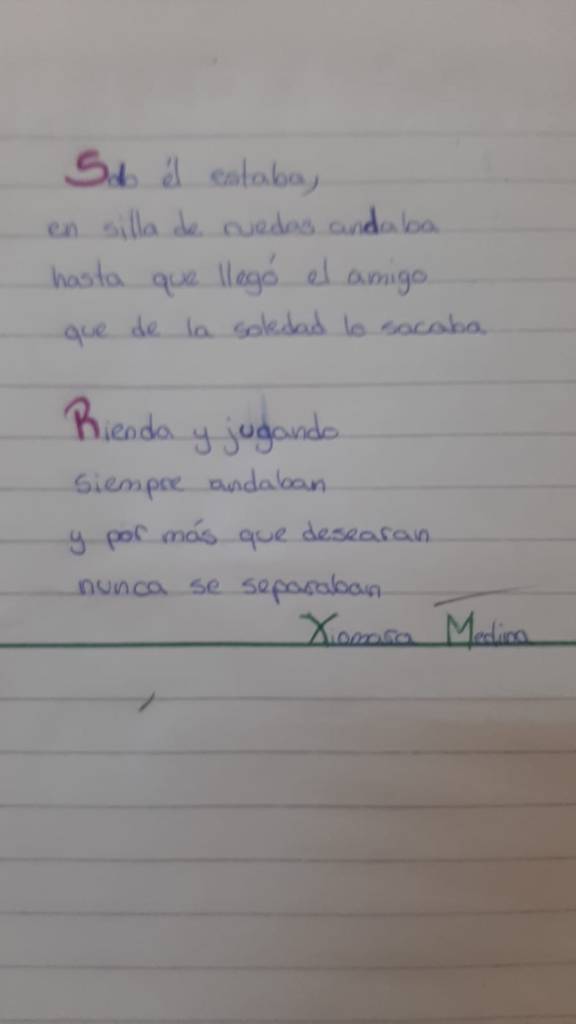 Solo él estaba,
en silla de ruedas andaba
hasta que llegó el amigo
que de la soledad lo sacaba
Rienda y jugando
siempre andaban
y por más que desearan
nunca se separaban
Xiomara Medina